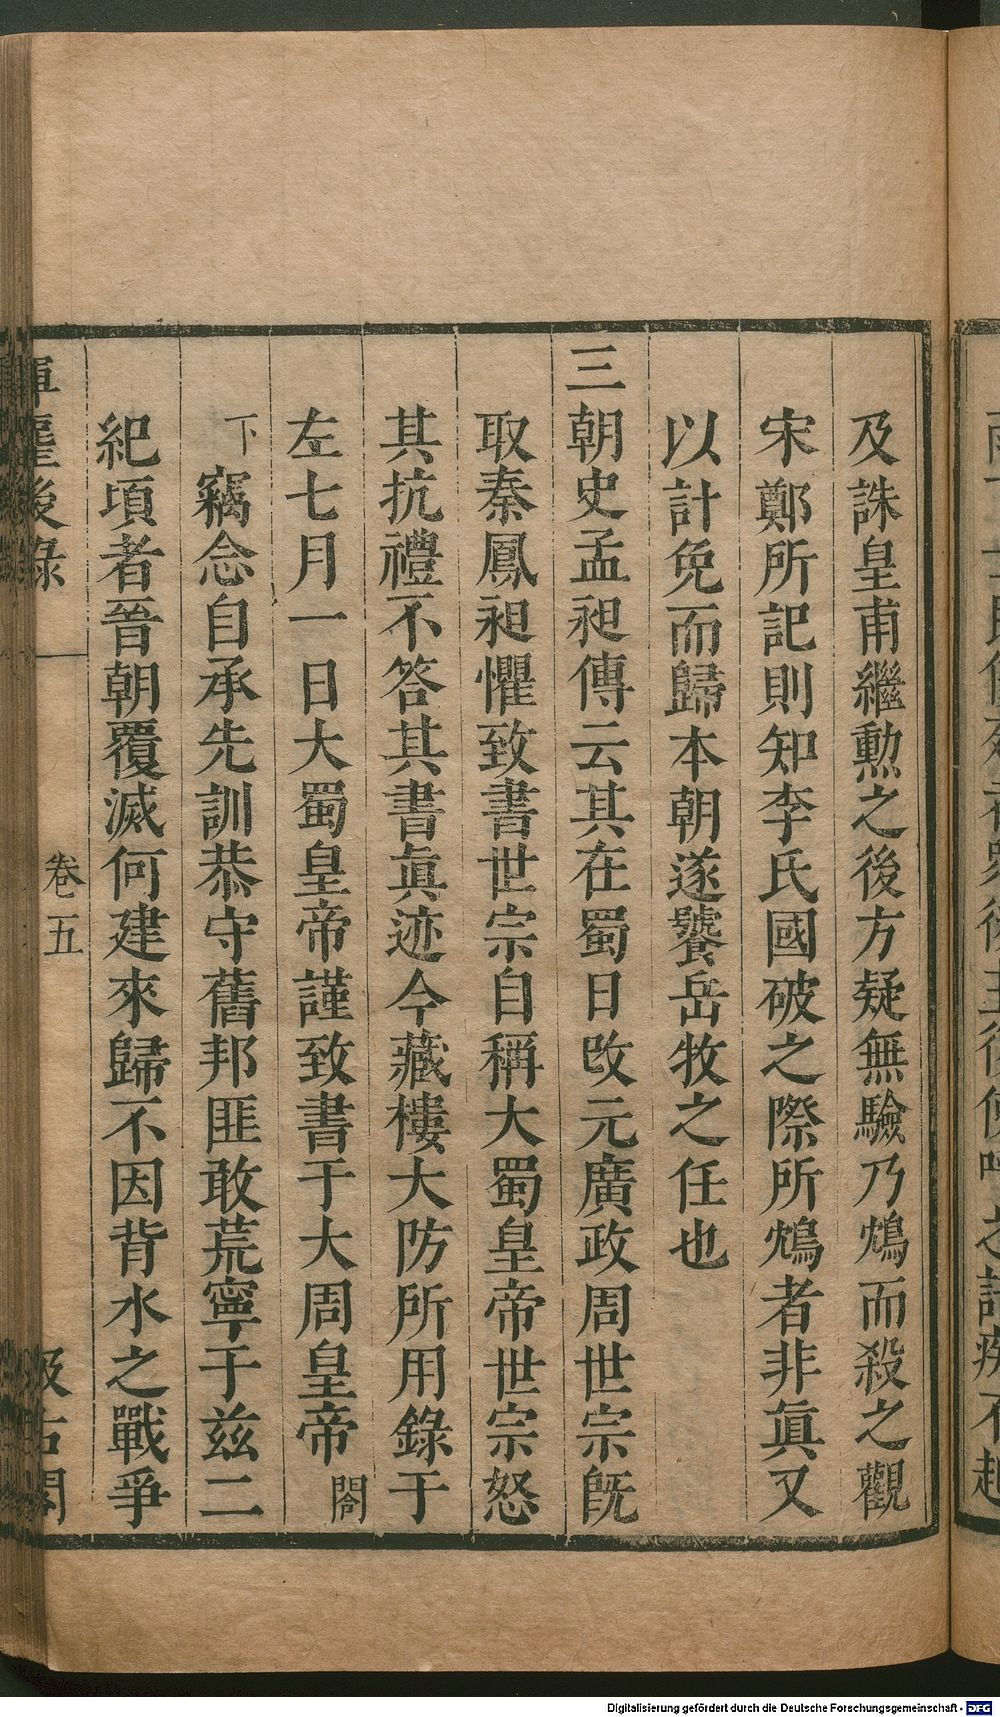 及誅皇甫繼勲之後方疑無驗乃鴆而殺之觀
宋鄭所記則知李氏國破之際所鴆者非眞又
以計免而歸本朝遂饕岳牧之任也
三朝史孟昶傳云其在蜀日改元廣政周世宗旣
取秦鳳昶懼致書世宗自稱大蜀皇帝世宗怒
其抗禮不答其書眞迹今藏樓大防所用錄于
左七月一日大蜀皇帝謹致書于大周皇帝閤
下竊念自承先訓恭守舊邦匪敢荒寧于兹二
紀頃者晉朝覆滅何建來歸不因背水之戰爭
後錄 卷五
Digitalisierung gefördert durch die Deutsche Forschungsgemeinschaft - DFG